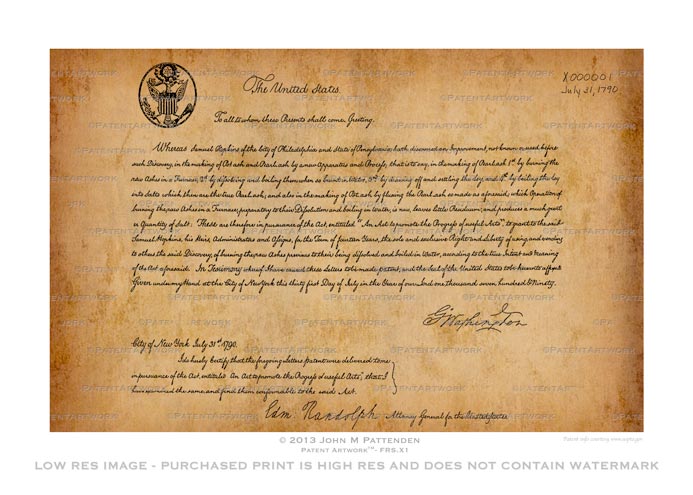 X000001
July 31, 1790
The United States.
To all to whom these Presents shall come, Greeting.
Whereas Samuel Hopkins of the City of Philadelphia and State of Pensylvania hath discovered an Improvement, not known or used before
such Discovery, in the making of Pot ash and Pearl ash by a new Apparatus and Process; that is to say, in the making of Pearl ash 1st. by burning the
raw Ashes in a Furnace, 2d. by dissolving and boiling them when so burnt in Water, 3rd. by drawing off and settling the Ley, and 4th. by boiling the Ley
into Salts which then are the true Pearl ash; and also in the making of Pot ash by fluxing the Pearl ash so made as aforesaid; which Operation of
burning the raw Ashes in a Furnace, preparatory to their Dissolution and boiling in Water, is new, leaves little Residuum; and produces a much greater
Quantity of Salt: These are therefore in pursuance of the Act, entitled "An Act to promote the Progress of useful Arts", to grant to the said
Samuel Hopkins, his Heirs, Administrators and Assigns, for the Term of fourteen Years, the sole and exclusive Right and Liberty of using, and vending
to others the said Discovery, of burning the raw Ashes previous to their being dissolved and boiled in Water, according to the true Intent and Meaning
of the Act aforesaid. In Testimony whereof I have caused these Letters to be made patent, and the Seal of the United States to be hereunto affixed
Given under my Hand at the City of New York this thirty first Day of July in the Year of our Lord one thousand seven hundred & Ninety.
G. Washington
City of New York July 31st. 1790.
I do hereby Certify that the foregoing Letters patent were delivered to me
in pursuance of the Act, entitled "An Act to promote the Progress of useful Arts"; that I
have examined the same, and find them conformable to the said Act.
Edm. Randolph Attorney General for the United States
Patent info courtesy www.uspto.gov
© 2013 John M Pattenden
Patent Artwork™- FRS.X1
LOW RES IMAGE - PURCHASED PRINT IS HIGH RES AND DOES NOT CONTAIN WATERMARK